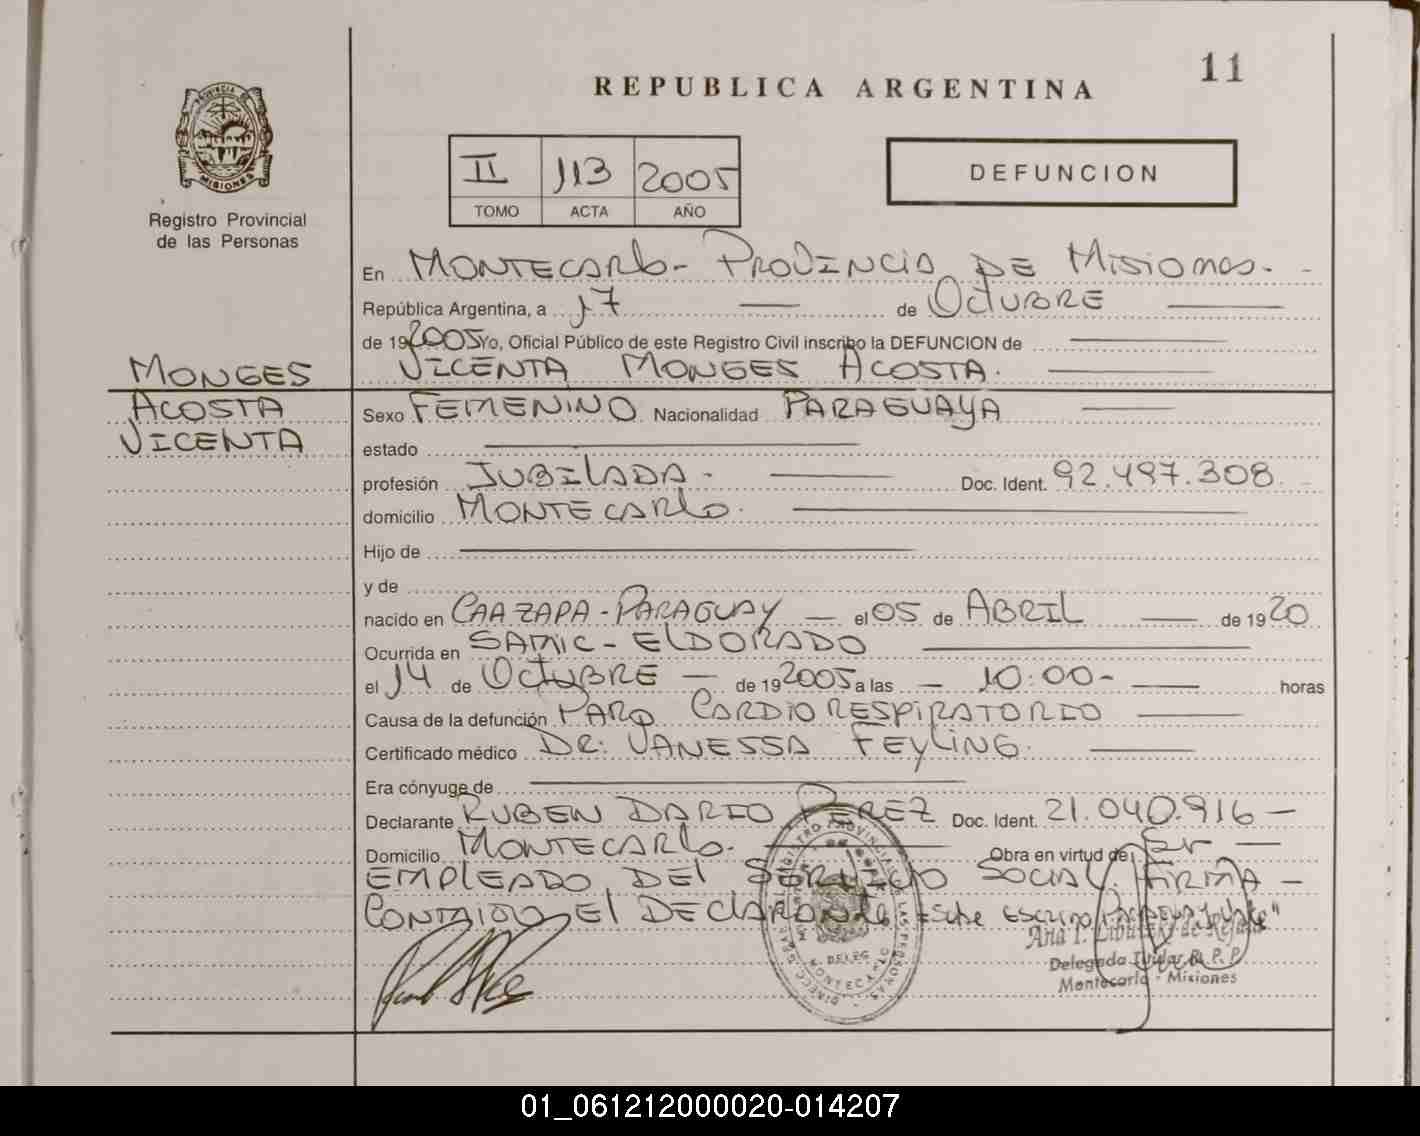 11
REPUBLICA ARGENTINA
PROVINCIA DE
MISIONES
Registro Provincial
de las Personas
II 113 2005
TOMO ACTA AÑO
DEFUNCION
En MONTECARLO - PROVINCIA DE MISIONES. -
República Argentina, a 17 — de OCTUBRE —
de 19 2005 Yo, Oficial Público de este Registro Civil inscribo la DEFUNCION de —
VICENTA MONGES ACOSTA. —
MONGES
ACOSTA
VICENTA
Sexo FEMENINO Nacionalidad PARAGUAYA —
estado —
profesión JUBILADA. — Doc. Ident. 92.497.308
domicilio MONTECARLO. —
Hijo de —
y de
nacido en CAAZAPA - PARAGUAY — el 05 de ABRIL — de 19 20
Ocurrida en SAMIC - ELDORADO —
el 14 de OCTUBRE — de 19 2005 a las — 10:00 - — horas
Causa de la defunción PARO CARDIORESPIRATORIO —
Certificado médico DR: VANESSA FEYLING. —
Era cónyuge de —
Declarante RUBEN DARIO PEREZ Doc. Ident. 21.040.916 —
Domicilio MONTECARLO. — Obra en virtud de Er —
EMPLEADO DEL SERVICIO SOCIAL. FIRMA -
CONMIGO EL DECLARANTE
Delegada Titular R. P. P
Montecarlo - Misiones
DELEG
MONTECARLO
01_061212000020-014207